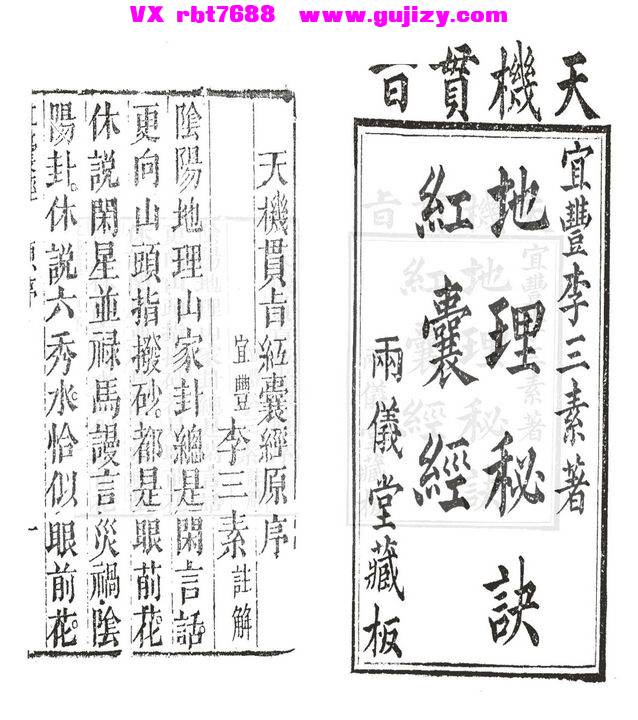 VX rbt7688 www.gujizy.com
天機貫旨
宜豐李三素著
地理秘訣
紅囊經
兩儀堂藏板
天機貫旨紅囊經原序
宜豐李三素註解
陰陽地理山家卦總是閑言話
更向山頭指撥砂都是眼前花
休說閑星並祿馬謾言災禍陰
陽卦休說六秀水恰似眼前花
一